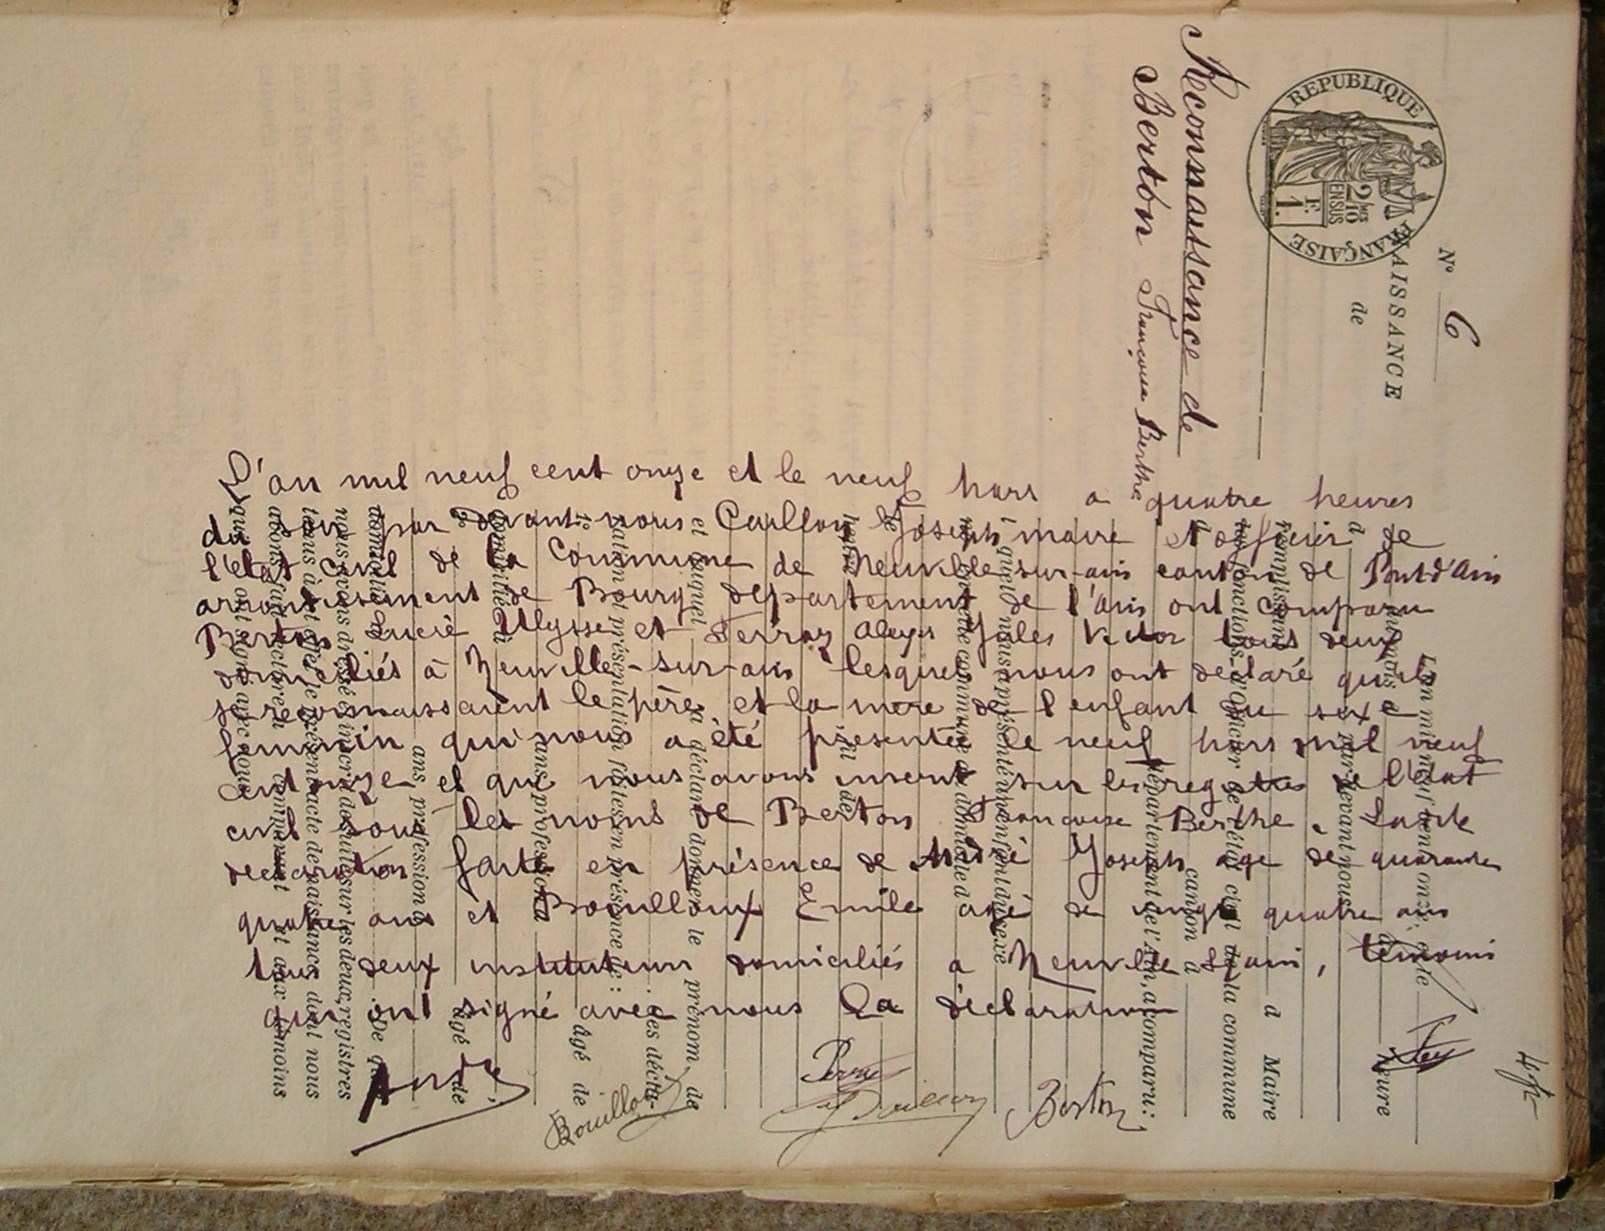 N° 6
NAISSANCE
de
REPUBLIQUE FRANÇAISE
2/10 EN SUS
1 F.
Reconnaissance de
Berton Françoise Berthe
L'an mil neuf cent onze et le neuf Mars a quatre heures
du soir par devant nous Joseph maire et officier de
l'état civil de la Commune de Neuville-sur-ain canton de Pont d'Ain
arrondissement de Bourg département de l'ain ont comparu
Berton Ulysse et Jules Victor tous deux
domiciliés à Neuville-sur-ain lesquels nous ont declaré qu'ils
se reconnaissaient le père et la mère de l'enfant du sexe
feminin qui nous a été présentée le neuf Mars mil neuf
cent onze et que nous avons inscrit sur les registres de l'état
civil sous les noms de Berton Françoise Berthe. La dite
declaration faite en présence de André Joseph age de quarante
quatre ans et Bouilloux Emile agé de vingt quatre ans
tous deux domiciliés a Neuville s/ain, témoins
qui ont signé avec nous la déclaration
L'an mil neuf cent onze, et le
heure
du par devant nous
d Maire
remplissant
les fonctions d'Officier de l'état civil de la commune
d canton d
département de l'Ain, a comparu:
lequel nous a présenté un enfant du sexe
né en cette commune au domicile d
le
heure
fil de
et auquel a déclaré donner le prénom de
Les décla-
ration et présentation faites en présence de:
1° âgé de
ans, profession d
domicilié à
2° âgé de
ans, profession d
domicilié à De quoi
nous avons dressé et inscrit de suite sur les deux registres
tenus à cet effet, le présent acte de naissance dont nous
avons fait lecture au comparant et aux témoins
lesquels ont signé avec nous
André
Bouilloux
Berton